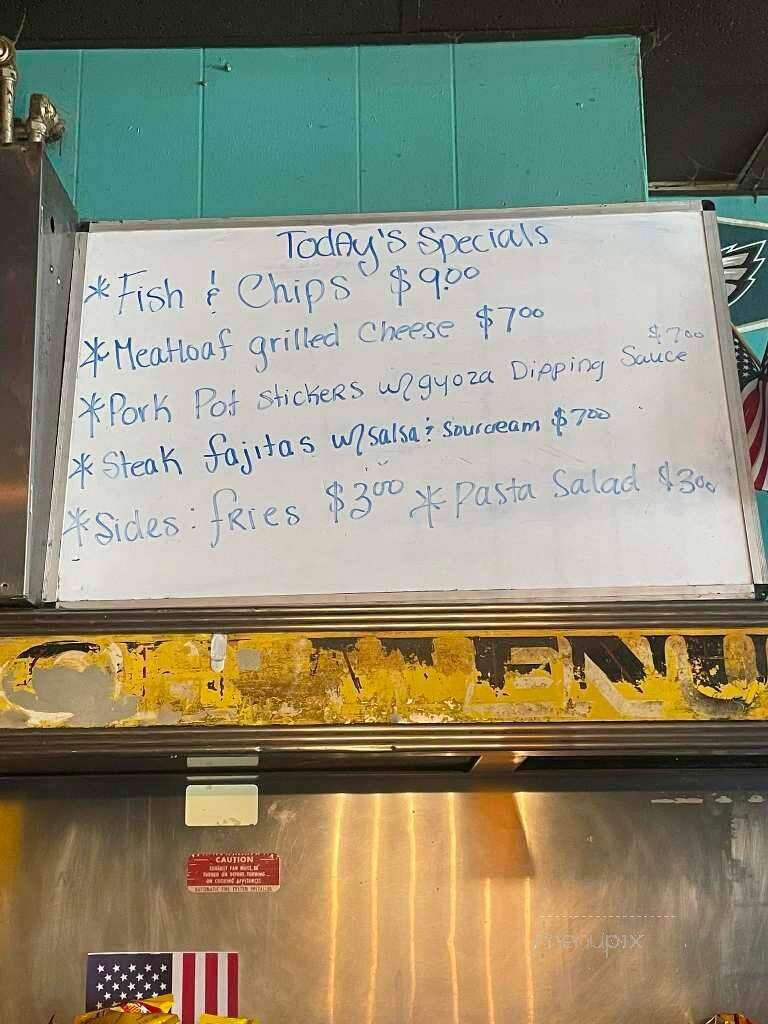 TodAy's Specials
* Fish & Chips $9.00
* Meatloaf grilled Cheese $7.00
* Pork Pot stickers w/gyoza Dipping Sauce $7.00
* Steak fajitas w/salsa & sourceam $7.00
* Sides: fries $3.00 * Pasta Salad $3.00
CAUTION
AUTOMATIC FIRE SYSTEM INSTALLED
menupix